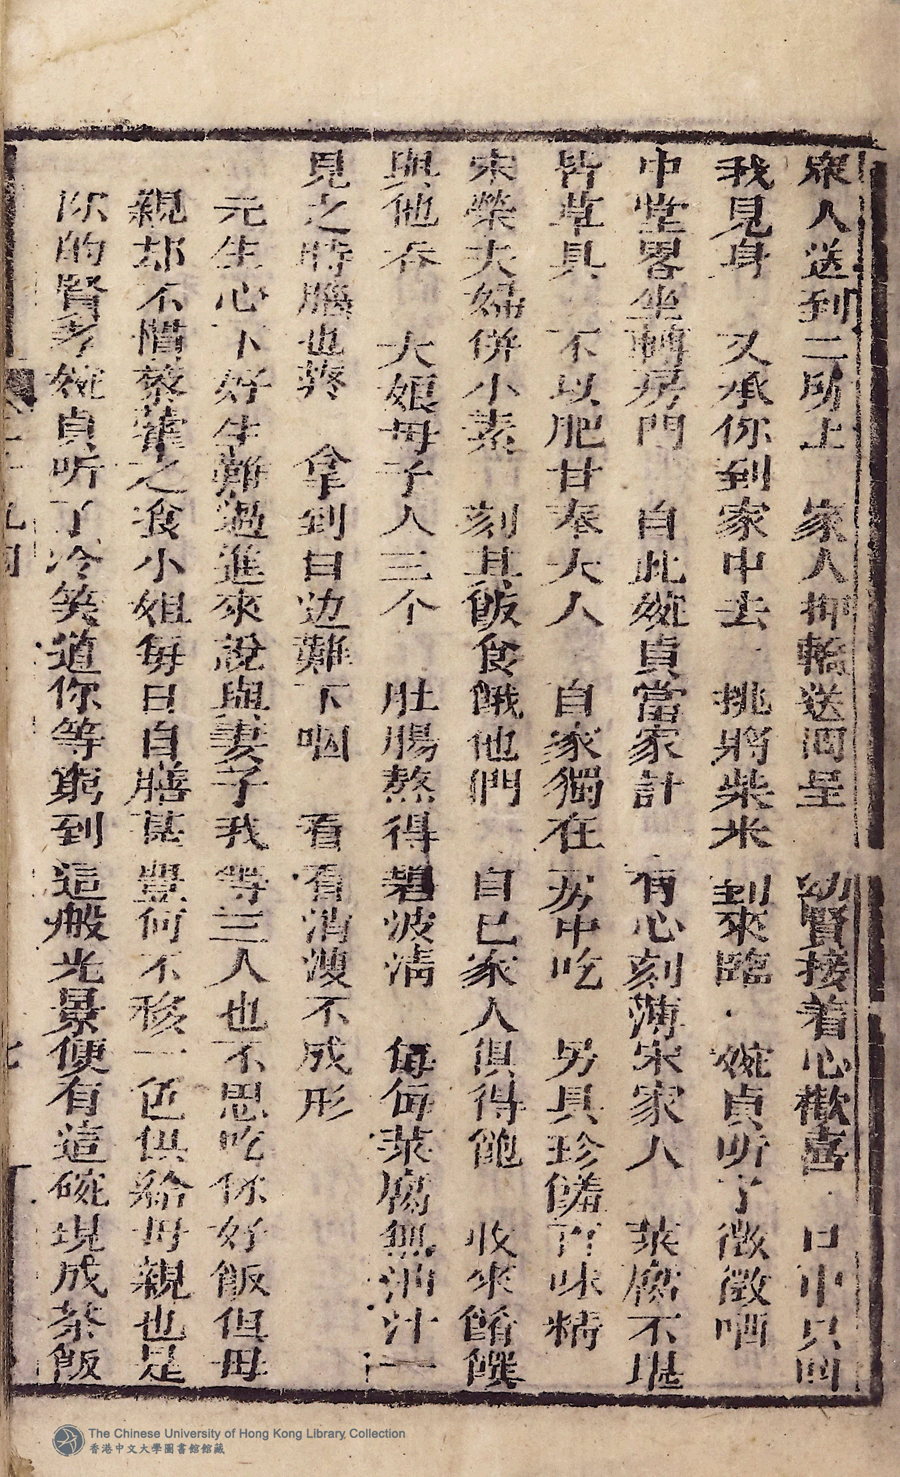 眾人送到二所上　家人押轎送囬呈　幼賢接着心歡喜　口中只囬
我見身　又承你到家中去　挑將柴米到來臨　婉貞听了微微哂
中堂畧坐轉房門　自此婉貞當家計　有心刻薄宋家人　菜腐不堪
皆草具　不以肥甘奉大人　自家獨在房中吃　另具珍饈百味精
宋榮夫婦併小素　刻其飯食餓他們　自已家人俱得飽　收來餚饌
與他吞　大娘母子人三个　肚腸熬得碧波淸　每每菜腐無油汁
見之時腦也疼　拿到口边難下咽　看看消瘦不成形
元生心下好生難過進來說與妻子我等三人也不思吃你好飯但母
親却不慣藜藿之食小姐每日自膳甚豐何不移一色供給母親也是
你的賢孝婉貞听了冷笑道你等窮到這般光景便有這碗現成茶飯
十九囬
七
The Chinese University of Hong Kong Library Collection
香港中文大學圖書館館藏